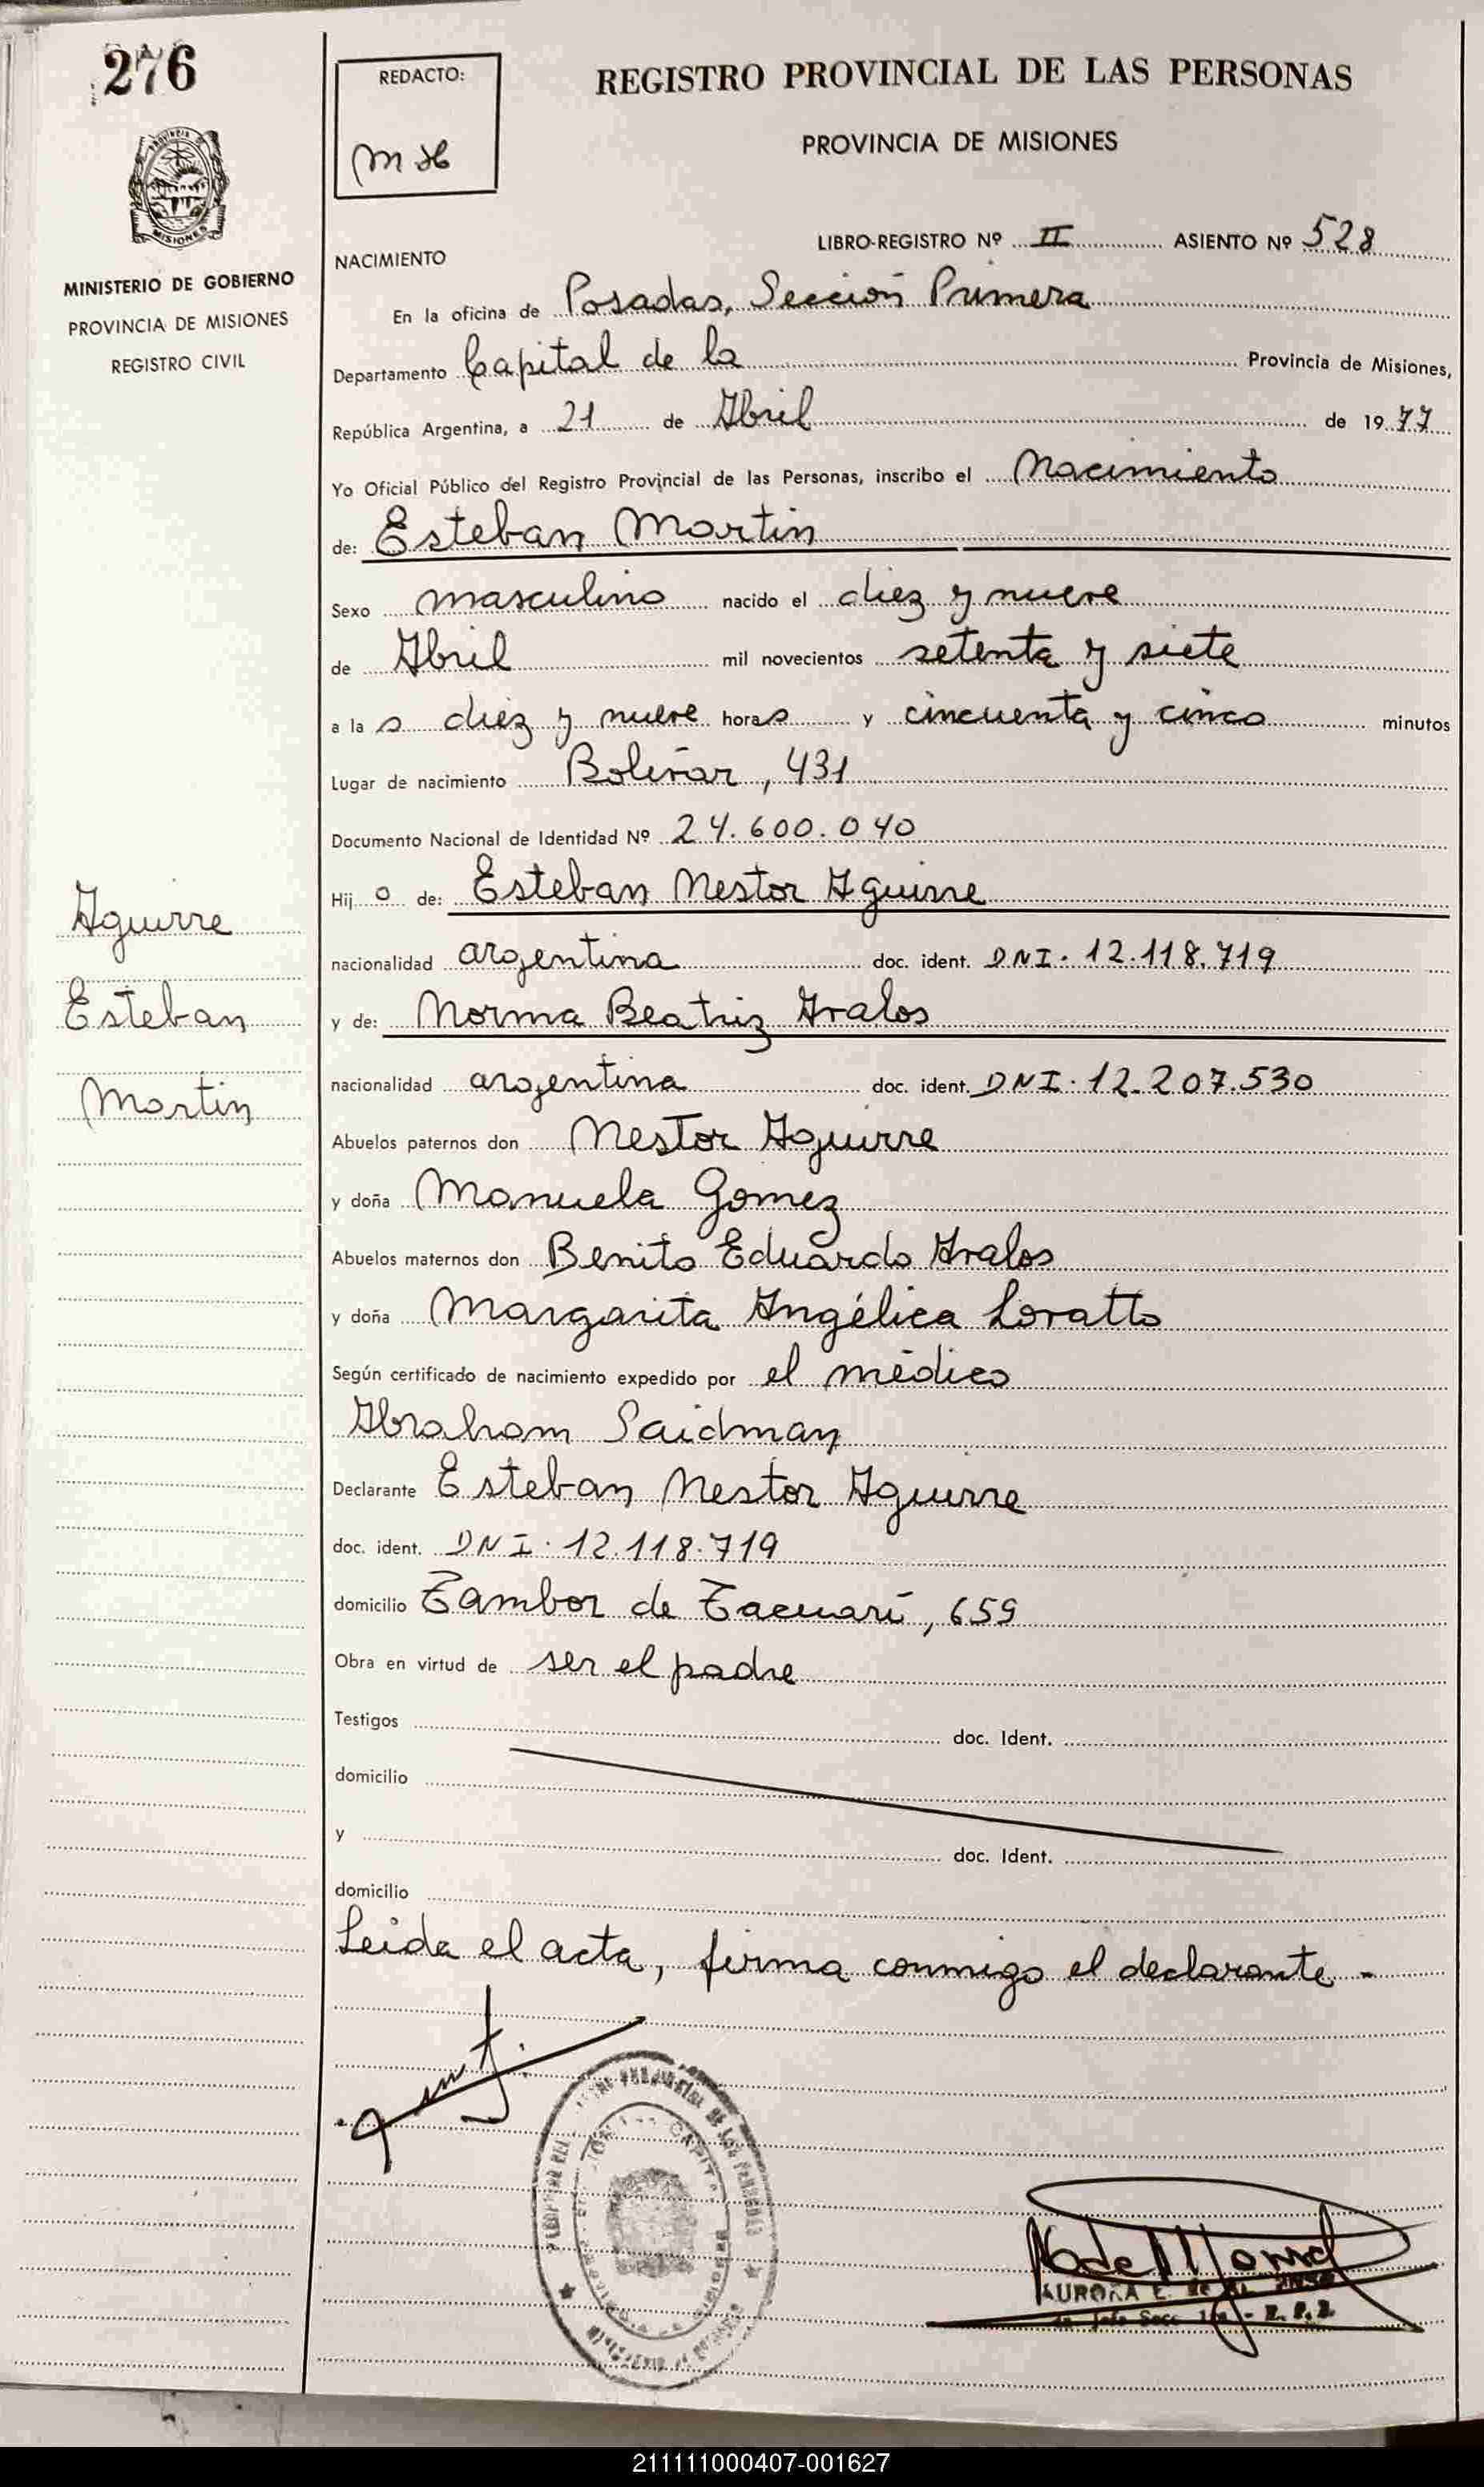 276
REDACTO:
REGISTRO PROVINCIAL DE LAS PERSONAS
PROVINCIA DE MISIONES
MISIONES
MINISTERIO DE GOBIERNO
PROVINCIA DE MISIONES
REGISTRO CIVIL
LIBRO-REGISTRO Nº II ASIENTO Nº 528
NACIMIENTO
En la oficina de Posadas, Sección Primera
Departamento Capital de la Provincia de Misiones,
República Argentina, a 21 de Abril de 1977
Yo Oficial Público del Registro Provincial de las Personas, inscribo el Nacimiento
de: Esteban Martin
Sexo masculino nacido el diez y nueve
de Abril mil novecientos setenta y siete
a la s diez y nueve horas y cincuenta y cinco minutos
Lugar de nacimiento Bolivar, 431
Documento Nacional de Identidad Nº 24.600.040
Hij o de: Esteban Nestor Aguirre
nacionalidad argentina doc. ident. DNI. 12.118.719
y de: Norma Beatriz Avalos
nacionalidad argentina doc. ident. DNI. 12.207.530
Abuelos paternos don Nestor Aguirre
y doña Manuela Gomez
Abuelos maternos don Benito Eduardo Avalos
y doña Margarita Angélica Loratto
Según certificado de nacimiento expedido por el médico
Abraham Saidman
Declarante Esteban Nestor Aguirre
doc. ident. DNI. 12.118.719
domicilio Tambor de Tacuarí, 659
Obra en virtud de ser el padre
Testigos doc. Ident.
domicilio
y doc. Ident.
domicilio
Leida el acta, firma conmigo el declarante -
Aguirre
Esteban
Martin
AURORA E. de
Jefe Secc.
211111000407-001627